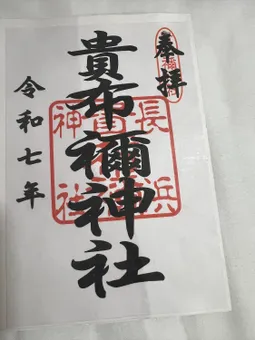 奉拝
貴布禰神社
令和七年
長浜
神社